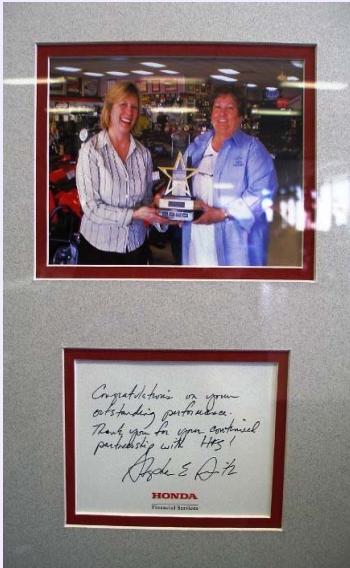 Congratulations on your
outstanding performance.
Thank you for your continued
partnership with HFS!
HONDA
Financial Services